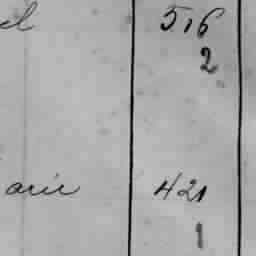 el 516
2
arie 421
1